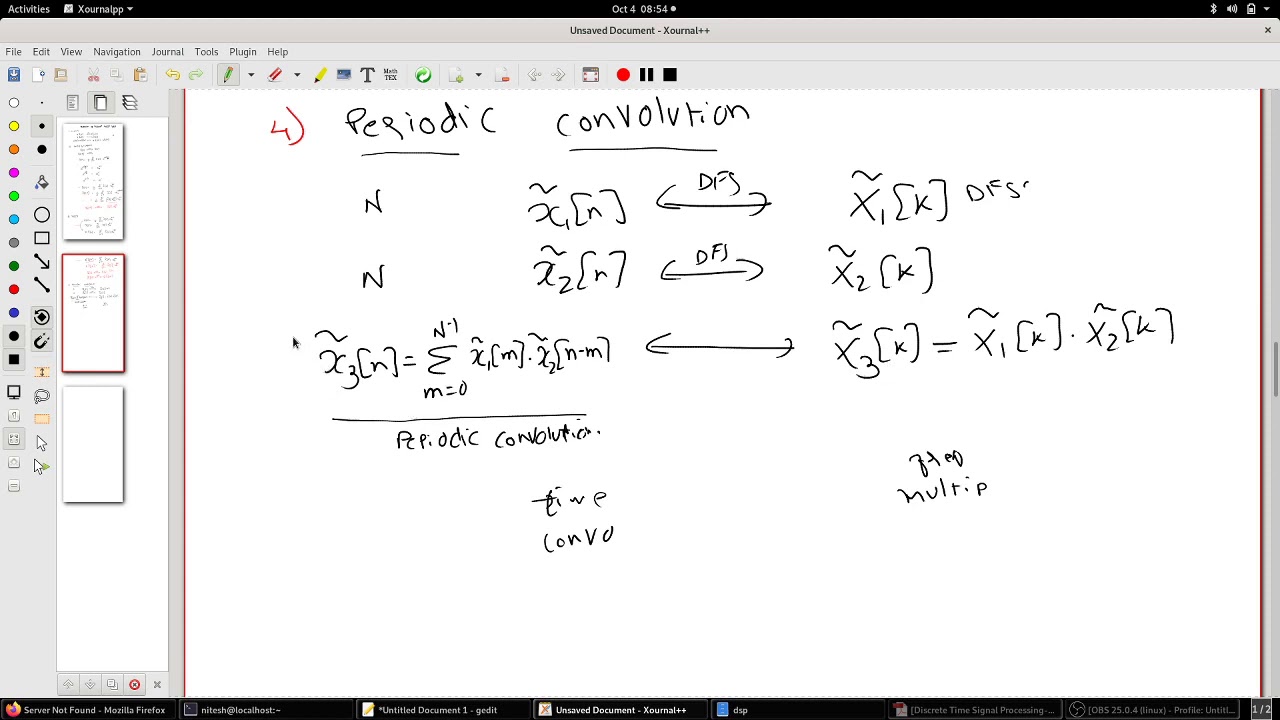 Activities Xournalpp Oct 4 08:54
Unsaved Document - Xournal++
File Edit View Navigation Journal Tools Plugin Help
4) Periodic convolution
N x̃₁[n] ⟷ DFS X̃₁[k] DFS
N x̃₂[n] ⟷ DFS X̃₂[k]
x̃₃[n] = ∑_{m=0}^{N-1} x̃₁[m]·x̃₂[n-m] ⟷ X̃₃[k] = X̃₁[k]·X̃₂[k]
Periodic convolution.
time
convo
freq
multip
Server Not Found - Mozilla Firefox nitesh@localhost:~ *Untitled Document 1 - gedit Unsaved Document - Xournal++ dsp [Discrete Time Signal Processing-... [OBS 25.0.4 (linux) - Profile: Untitl... 1 / 2